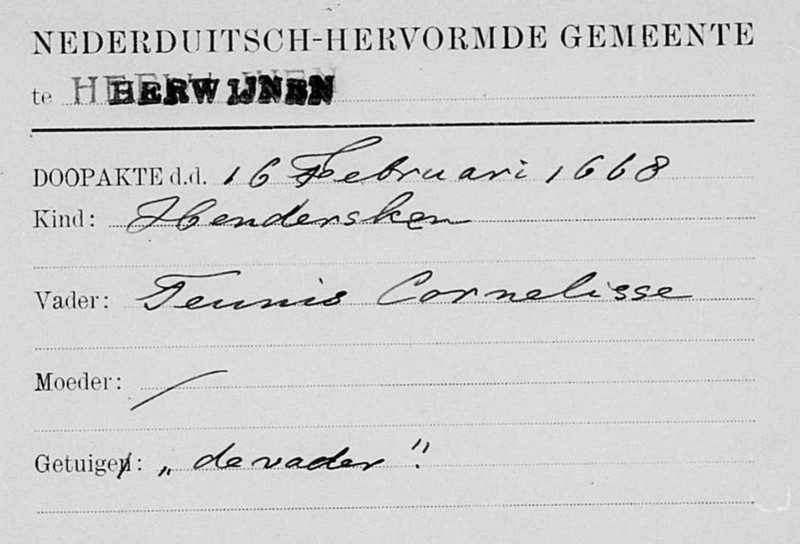 NEDERDUITSCH-HERVORMDE GEMEENTE
te HERWIJNEN
DOOPAKTE d.d. 16 Februari 1668
Kind: Hendersken
Vader: Teunis Cornelisse
Moeder: /
Getuigen: „de vader”.